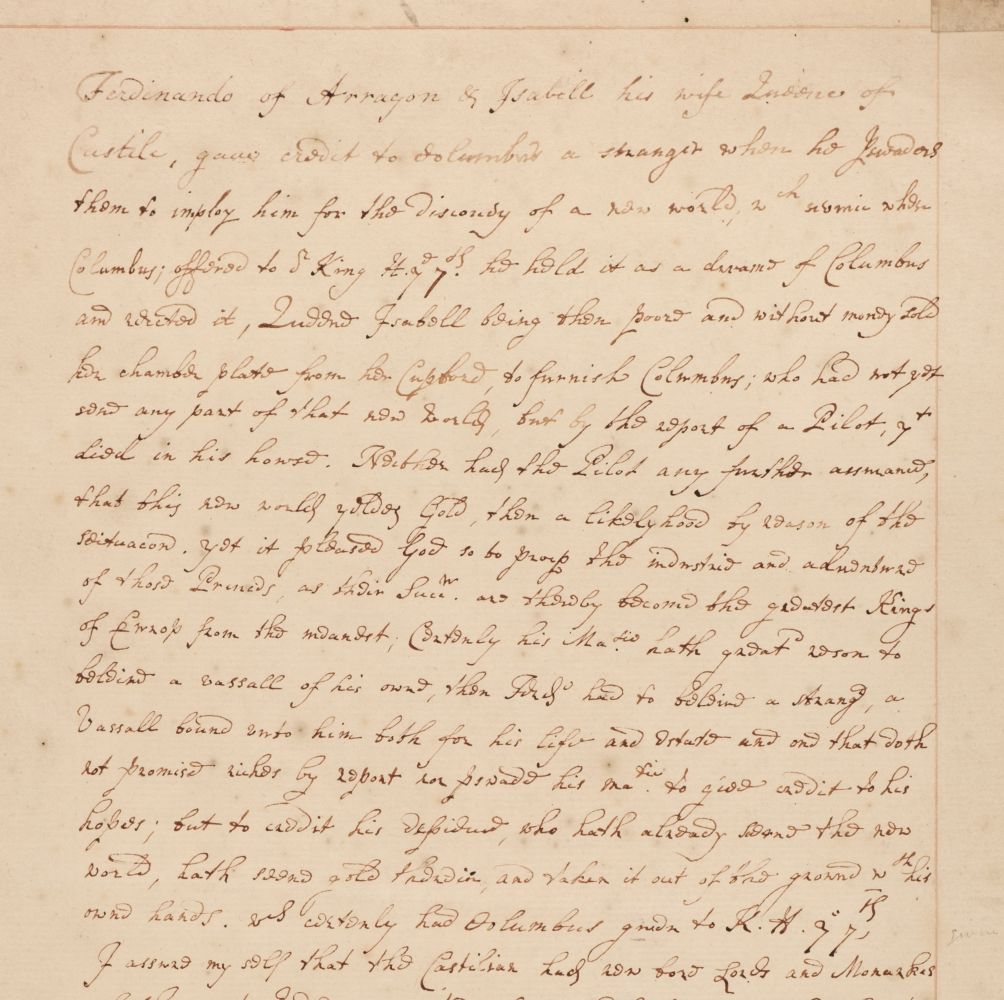 Ferdinando of Arragon & Isabell his wife Queene of
Castile, gave credit to Columbus a stranger when he pswaded
them to imploy him for the discouery of a new world, wch when
Columbus; offered to King H. ye 7th. he held it as a dreame of Columbus
and reiected it, Queene Isabell being then poore and without money sold
her chamber plate from her Cupbord, to furnish Columbus; who had not yet
seene any part of that new world, but by the report of a Pilot, yt
died in his howse. Neither had the Pilot any further assurance,
that this new world yelded Gold, then a likelyhood by reason of the
scituacon. yet it pleased God so to prosp the industrie and aduenture
of those Princes, as their Succ. are thereby become the greatest Kings
of Europ from the meanest; Certenly his Matie hath great reson to
beleiue a vassall of his owne, then had to beleiue a strang, a
Vassall bound vnto him both for his life and estate and one that doth
not promise riches by report nor pswade his matie. to giue credit to his
hopes; but to creddit his who hath already seene the new
world, hath seene gold therein, and taken it out of the ground wth his
owne hands. wch certenly had Columbus giuen to K. H. ye 7th
I assure my self that the Castilian had new bore Lords and Monarkes